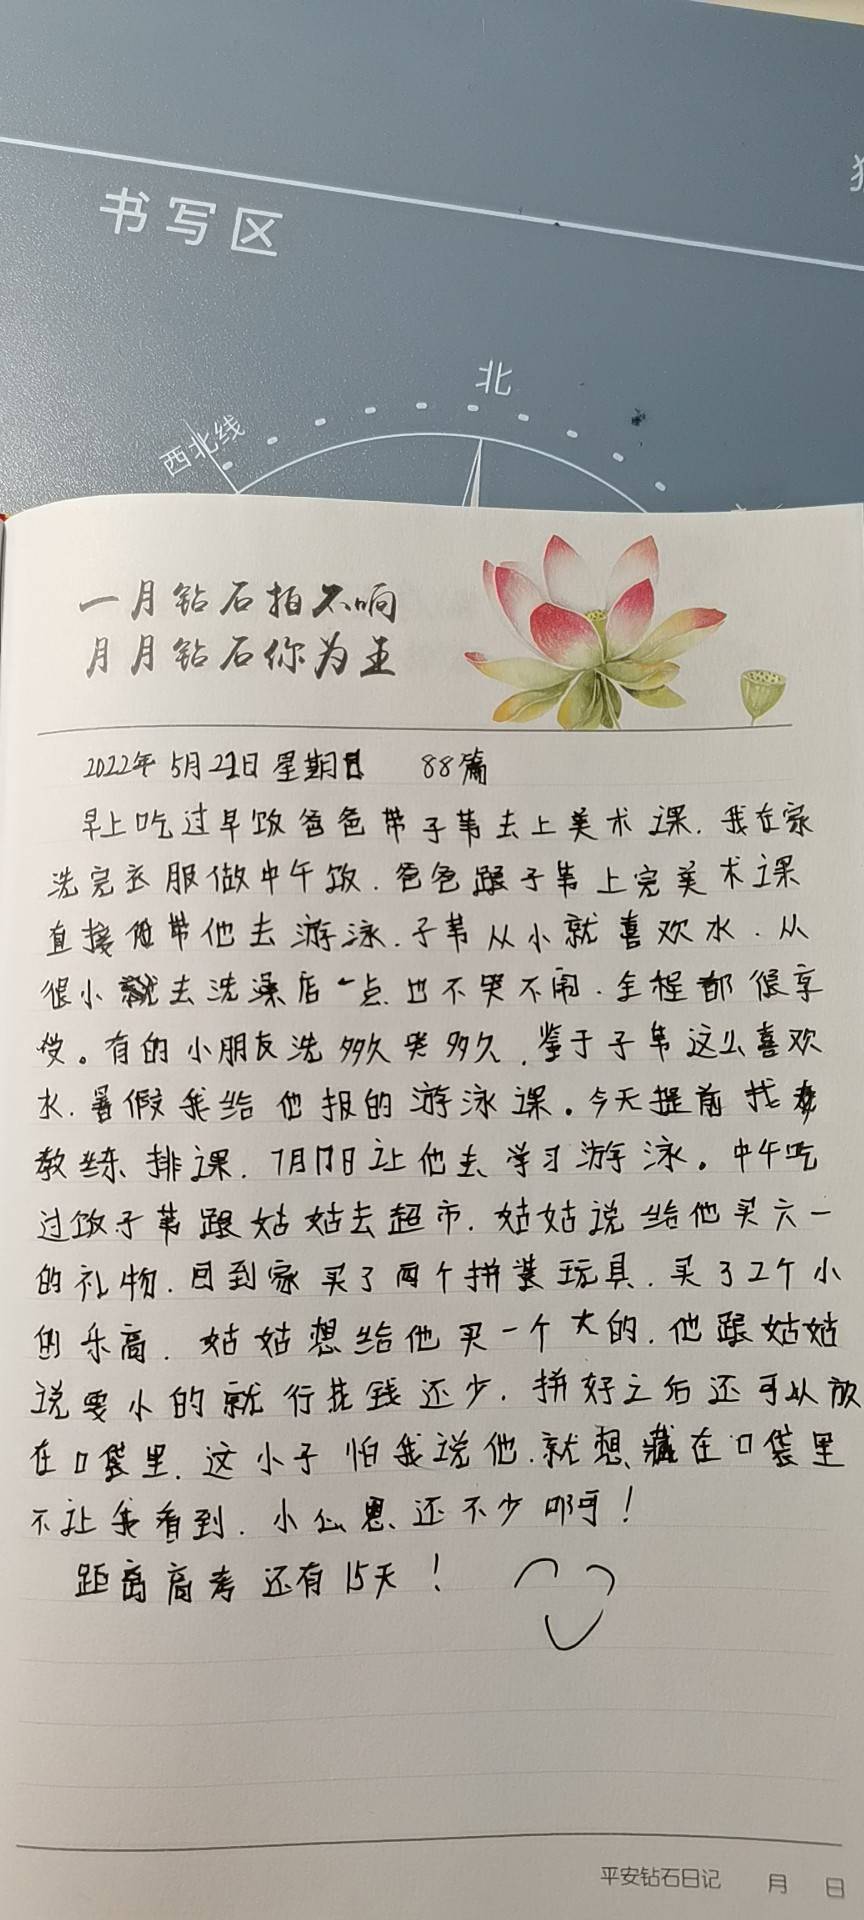 书写区
北
西北线
一月钻石拍不响
月月钻石你为王
2022年5月22日星期日 88篇
早上吃过早饭爸爸带子苇去上美术课.我在家
洗完衣服做中午饭.爸爸跟子苇上完美术课
直接带他去游泳.子苇从小就喜欢水.从
很小就去洗澡店一点也不哭不闹.全程都很享
受。有的小朋友洗多久哭多久,鉴于子苇这么喜欢
水.暑假我给他报的游泳课。今天提前找
教练排课.7月17日让他去学习游泳。中午吃
过饭子苇跟姑姑去超市.姑姑说给他买六一
的礼物.回到家买了两个拼装玩具.买了2个小
的乐高.姑姑想给他买一个大的.他跟姑姑
说要小的就行花钱还少.拼好之后还可以放
在口袋里.这小子怕我说他.就想藏在口袋里
不让我看到.小心思还不少啊!
距离高考还有15天!
平安钻石日记 月 日